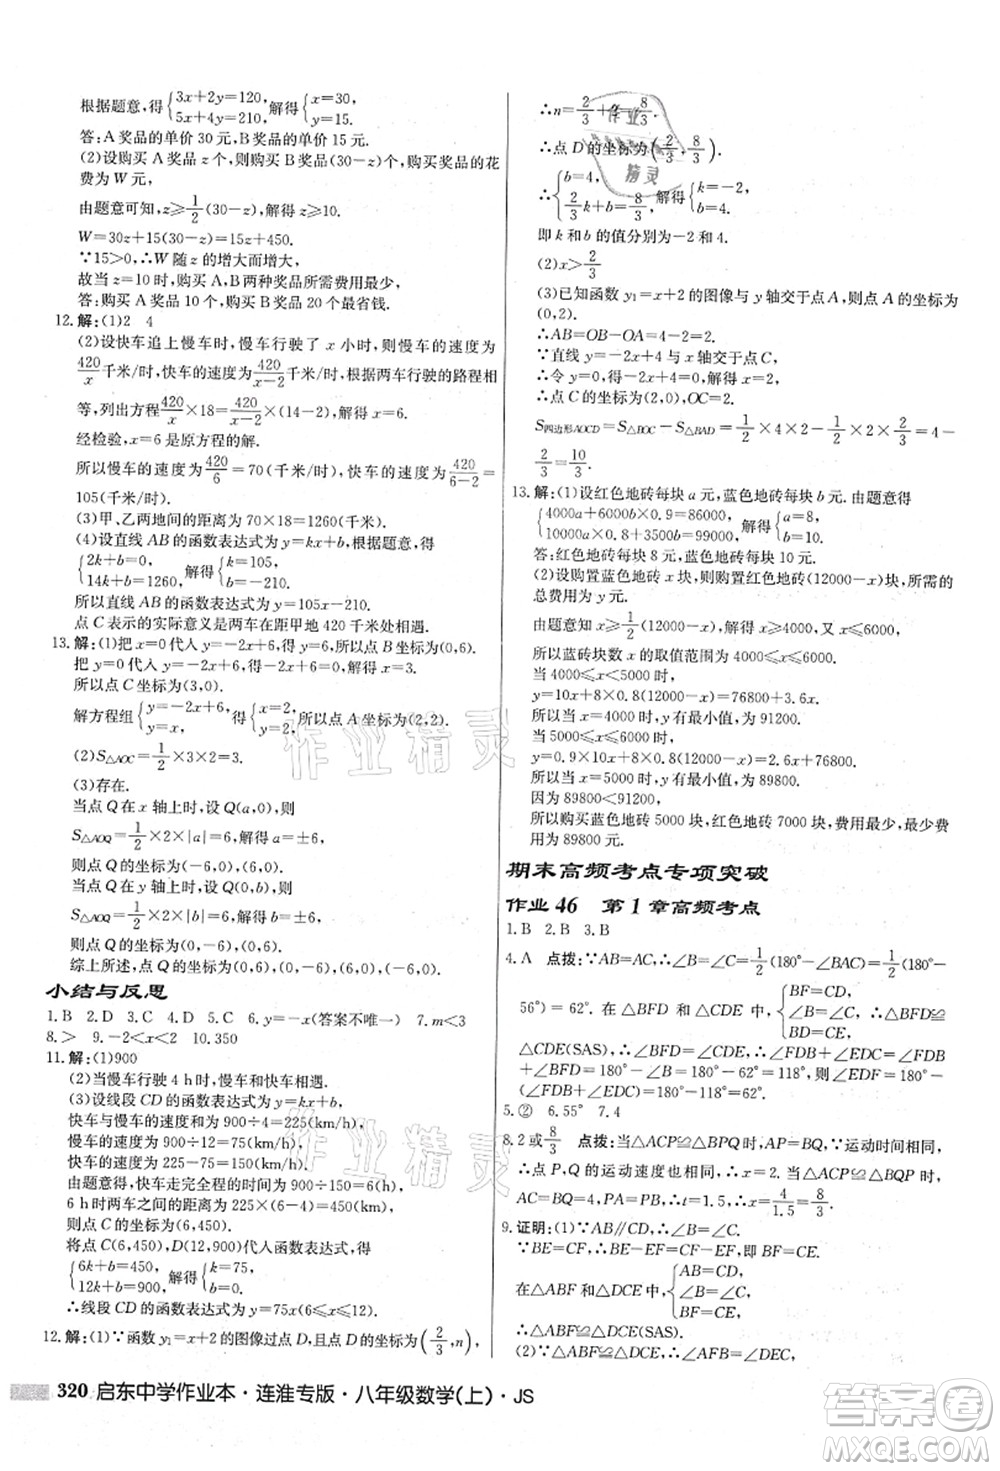 根据题意,得{3x+2y=120, 5x+4y=210, 解得{x=30, y=15.
答:A奖品的单价30元,B奖品的单价15元.
(2)设购买A奖品z个,则购买B奖品(30-z)个,购买奖品的花
费为W元,
由题意可知,z≥1/2(30-z),解得z≥10.
W=30z+15(30-z)=15z+450.
∵15>0,∴W随z的增大而增大,
故当z=10时,购买A,B两种奖品所需费用最少.
答:购买A奖品10个,购买B奖品20个最省钱.
12.解:(1)2 4
(2)设快车追上慢车时,慢车行驶了x小时,则慢车的速度为
420/x千米/时,快车的速度为420/(x-2)千米/时,根据两车行驶的路程相
等,列出方程420/x×18=420/(x-2)×(14-2),解得x=6.
经检验,x=6是原方程的解.
所以慢车的速度为420/6=70(千米/时),快车的速度为420/(6-2)=
105(千米/时).
(3)甲、乙两地间的距离为70×18=1260(千米).
(4)设直线AB的函数表达式为y=kx+b,则
{2k+b=0, 14k+b=1260, 解得{k=105, b=-210.
所以直线AB的函数表达式为y=105x-210.
点C表示的实际意义是两车在距甲地420千米处相遇.
13.解:(1)把x=0代入y=-2x+6,得y=6,所以点B坐标为(0,6).
把y=0代入y=-2x+6,得0=-2x+6,解得x=3,
所以点C坐标为(3,0).
解方程组{y=-2x+6, y=x, 得{x=2, y=2, 所以点A坐标为(2,2).
(2)S△AOC=1/2×3×2=3.
(3)存在.
当点Q在x轴上时,设Q(a,0),则
S△AOQ=1/2×2×|a|=6,解得a=±6,
则点Q的坐标为(-6,0),(6,0).
当点Q在y轴上时,设Q(0,b),则
S△AOQ=1/2×2×|b|=6,解得b=±6,
则点Q的坐标为(0,-6),(0,6).
综上所述,点Q的坐标为(-6,0),(6,0),(0,-6),(0,6).
小结与反思
1.B 2.D 3.C 4.D 5.C 6.y=-x(答案不唯一) 7.m<3
8.> 9.-2<x<2 10.350
11.解:(1)900
(2)当慢车行驶4 h时,慢车和快车相遇.
(3)设线段CD的函数表达式为y=kx+b,
快车与慢车的速度和为900÷4=225(km/h),
慢车的速度为900÷12=75(km/h),
快车的速度为225-75=150(km/h).
由题意得,快车走完全程的时间为900÷150=6(h),
6 h时两车之间的距离为225×(6-4)=450(km),
所以点C的坐标为(6,450).
将点C(6,450),D(12,900)代入函数表达式,得
{6k+b=450, 12k+b=900, 解得{k=75, b=0.
∴线段CD的函数表达式为y=75x(6≤x≤12).
12.解:(1)∵函数y₁=x+2的图像过点D,且点D的坐标为(2/3,n),
∴n=2/3+2=8/3.
∴点D的坐标为(2/3,8/3).
∴{b=4, 2/3k+b=8/3, 解得{k=-2, b=4.
即k和b的值分别为-2和4.
(2)x>2/3
(3)已知函数y₁=x+2的图像与y轴交于点A,则点A的坐标为
(0,2).
∴AB=OB-OA=4-2=2.
∵直线y=-2x+4与x轴交于点C,
∴令y=0,则-2x+4=0,则x=2.
∴点C的坐标为(2,0),OC=2.
S四边形AOCD=S△BOC-S△BAD=1/2×4×2-1/2×2×2/3=4-
2/3=10/3.
13.解:(1)设红色地砖每块a元,蓝色地砖每块b元.由题意得
{4000a+6000b×0.9=86000, 10000a×0.8+3500b=99000, 解得{a=8, b=10.
答:红色地砖每块8元,蓝色地砖每块10元.
(2)设购置蓝色地砖x块,则购置红色地砖(12000-x)块,所需的
总费用为y元.
由题意知x≥1/2(12000-x),解得x≥4000,又x≤6000,
所以蓝砖块数x的取值范围为4000≤x≤6000.
当4000≤x<5000时,
y=10x+8×0.8(12000-x)=76800+3.6x.
所以当x=4000时,y有最小值,为91200.
当5000≤x≤6000时,
y=0.9×10x+8×0.8(12000-x)=2.6x+76800.
所以当x=5000时,y有最小值,为89800.
因为89800<91200,
所以购买蓝色地砖5000块,红色地砖7000块,费用最少,最少费
用为89800元.
期末高频考点专项突破
作业46 第1章高频考点
1.B 2.B 3.B
4.A 点拨:∵AB=AC,∴∠B=∠C=1/2(180°-∠BAC)=1/2(180°-
56°)=62°.在△BFD和△CDE中,{BF=CD, ∠B=∠C, BD=CE, ∴△BFD≌
△CDE(SAS).∴∠BFD=∠CDE.∴∠FDB+∠CDE=∠FDB+
∠BFD=180°-∠B=118°.∴∠FDE=180°-118°=62°.
5.② 6.55° 7.4
8.2或8/3 点拨:当△ACP≌△BPQ时,AP=BQ,∵运动时间相同,
∴点P,Q的运动速度也相同,∴x=2.当△ACP≌△BQP时,
AC=BQ=4,PA=PB,∴t=1.5,∴x=4/1.5=8/3.
9.证明:(1)∵AB∥CD,∴∠B=∠C.
∵BE=CF,∴BE-EF=CF-EF,即BF=CE.
在△ABF和△DCE中,{AB=CD, ∠B=∠C, BF=CE,
∴△ABF≌△DCE(SAS).
(2)∵△ABF≌△DCE,
320 启东中学作业本·连淮专版·八年级数学(上)·JS
作业精灵
作业精灵
作业精灵
答案圈
MXQE.COM